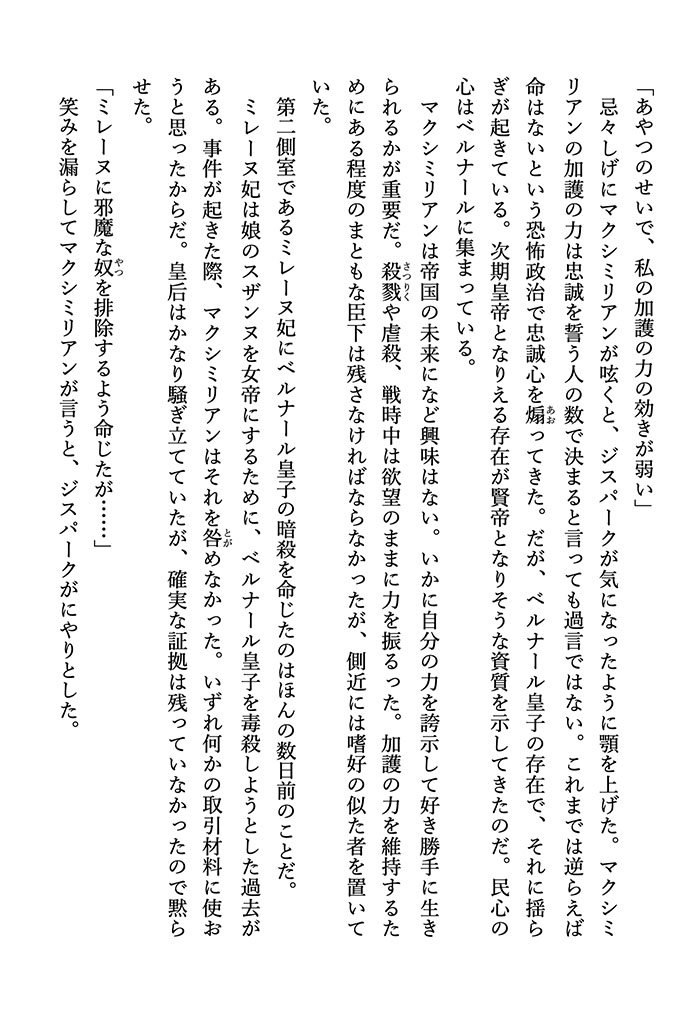 「あやつのせいで、私の加護の力の効きが弱い」
忌々しげにマクシミリアンが呟くと、ジスパークが気になったように顎を上げた。マクシミ
リアンの加護の力は忠誠を誓う人の数で決まると言っても過言ではない。これまでは逆らえば
命はないという恐怖政治で忠誠心を煽ってきた。だが、ベルナール皇子の存在で、それに揺ら
ぎが起きている。次期皇帝となりえる存在が賢帝となりそうな資質を示してきたのだ。民心の
心はベルナールに集まっている。
マクシミリアンは帝国の未来になど興味はない。いかに自分の力を誇示して好き勝手に生き
られるかが重要だ。殺戮や虐殺、戦時中は欲望のままに力を振るった。加護の力を維持するた
めにある程度のまともな臣下は残さなければならなかったが、側近には嗜好の似た者を置いて
いた。
第二側室であるミレーヌ妃にベルナール皇子の暗殺を命じたのはほんの数日前のことだ。
ミレーヌ妃は娘のスザンヌを女帝にするために、ベルナール皇子を毒殺しようとした過去が
ある。事件が起きた際、マクシミリアンはそれを咎めなかった。いずれ何かの取引材料に使お
うと思ったからだ。皇后はかなり騒ぎ立てていたが、確実な証拠は残っていなかったので黙ら
せた。
「ミレーヌに邪魔な奴を排除するよう命じたが……」
笑みを漏らしてマクシミリアンが言うと、ジスパークがにやりとした。